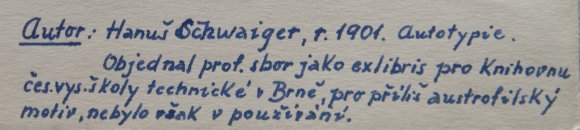 Autor: Hanuš Schwaiger, r. 1901. Autotypie.
Objednal prof. sbor jako exlibris pro Knihovnu
čes.vys.školy technické v Brně, pro příliš austrofilský
motiv, nebylo však v používání.